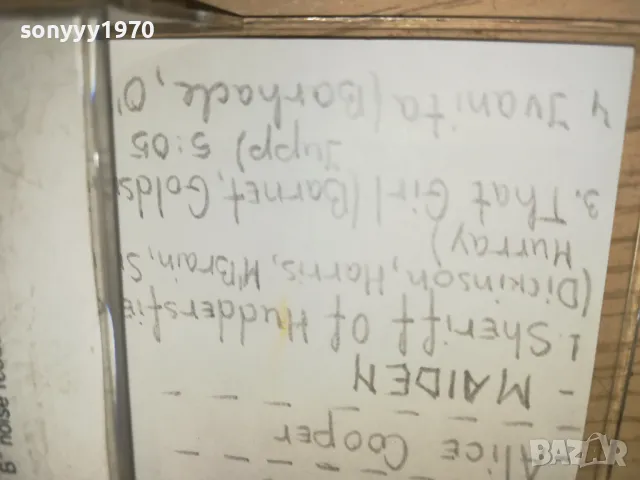 sonyyy1970
- Alice Cooper
- MAIDEN
1. Sheriff Of Huddersfie
(Dickinson, Harris, M'Brain, S
Murray)
3. That Girl (Barnet, Golds
Jupp) 5:05
4 Juanita (Barhade, O'
6" noise
BAZAR
bg